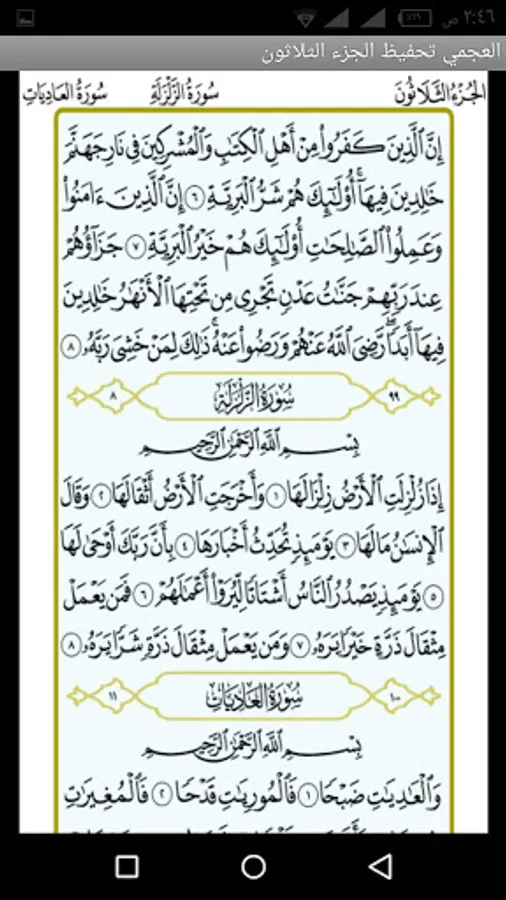 ٢:٤٦ ص
٦٩%
العجمي تحفيظ الجزء الثلاثون
الجُزْءُ الثَّلَاثُونَ سُورَةُ الزَّلْزَلَةِ سُورَةُ العَادِيَاتِ
إِنَّ ٱلَّذِينَ كَفَرُوا۟ مِنْ أَهْلِ ٱلْكِتَٰبِ وَٱلْمُشْرِكِينَ فِى نَارِ جَهَنَّمَ
خَٰلِدِينَ فِيهَآ ۚ أُو۟لَٰٓئِكَ هُمْ شَرُّ ٱلْبَرِيَّةِ ٦ إِنَّ ٱلَّذِينَ ءَامَنُوا۟
وَعَمِلُوا۟ ٱلصَّٰلِحَٰتِ أُو۟لَٰٓئِكَ هُمْ خَيْرُ ٱلْبَرِيَّةِ ٧ جَزَآؤُهُمْ
عِندَ رَبِّهِمْ جَنَّٰتُ عَدْنٍ تَجْرِى مِن تَحْتِهَا ٱلْأَنْهَٰرُ خَٰلِدِينَ
فِيهَآ أَبَدًا ۖ رَّضِىَ ٱللَّهُ عَنْهُمْ وَرَضُوا۟ عَنْهُ ۚ ذَٰلِكَ لِمَنْ خَشِىَ رَبَّهُۥ ٨
٩٩ سُورَةُ الزَّلْزَلَةِ ٨
بِسْمِ ٱللَّهِ ٱلرَّحْمَٰنِ ٱلرَّحِيمِ
إِذَا زُلْزِلَتِ ٱلْأَرْضُ زِلْزَالَهَا ١ وَأَخْرَجَتِ ٱلْأَرْضُ أَثْقَالَهَا ٢ وَقَالَ
ٱلْإِنسَٰنُ مَا لَهَا ٣ يَوْمَئِذٍ تُحَدِّثُ أَخْبَارَهَا ٤ بِأَنَّ رَبَّكَ أَوْحَىٰ لَهَا
٥ يَوْمَئِذٍ يَصْدُرُ ٱلنَّاسُ أَشْتَاتًا لِّيُرَوْا۟ أَعْمَٰلَهُمْ ٦ فَمَن يَعْمَلْ
مِثْقَالَ ذَرَّةٍ خَيْرًا يَرَهُۥ ٧ وَمَن يَعْمَلْ مِثْقَالَ ذَرَّةٍ شَرًّا يَرَهُۥ ٨
١٠٠ سُورَةُ العَادِيَاتِ ١١
بِسْمِ ٱللَّهِ ٱلرَّحْمَٰنِ ٱلرَّحِيمِ
وَٱلْعَٰدِيَٰتِ ضَبْحًا ١ فَٱلْمُورِيَٰتِ قَدْحًا ٢ فَٱلْمُغِيرَٰتِ